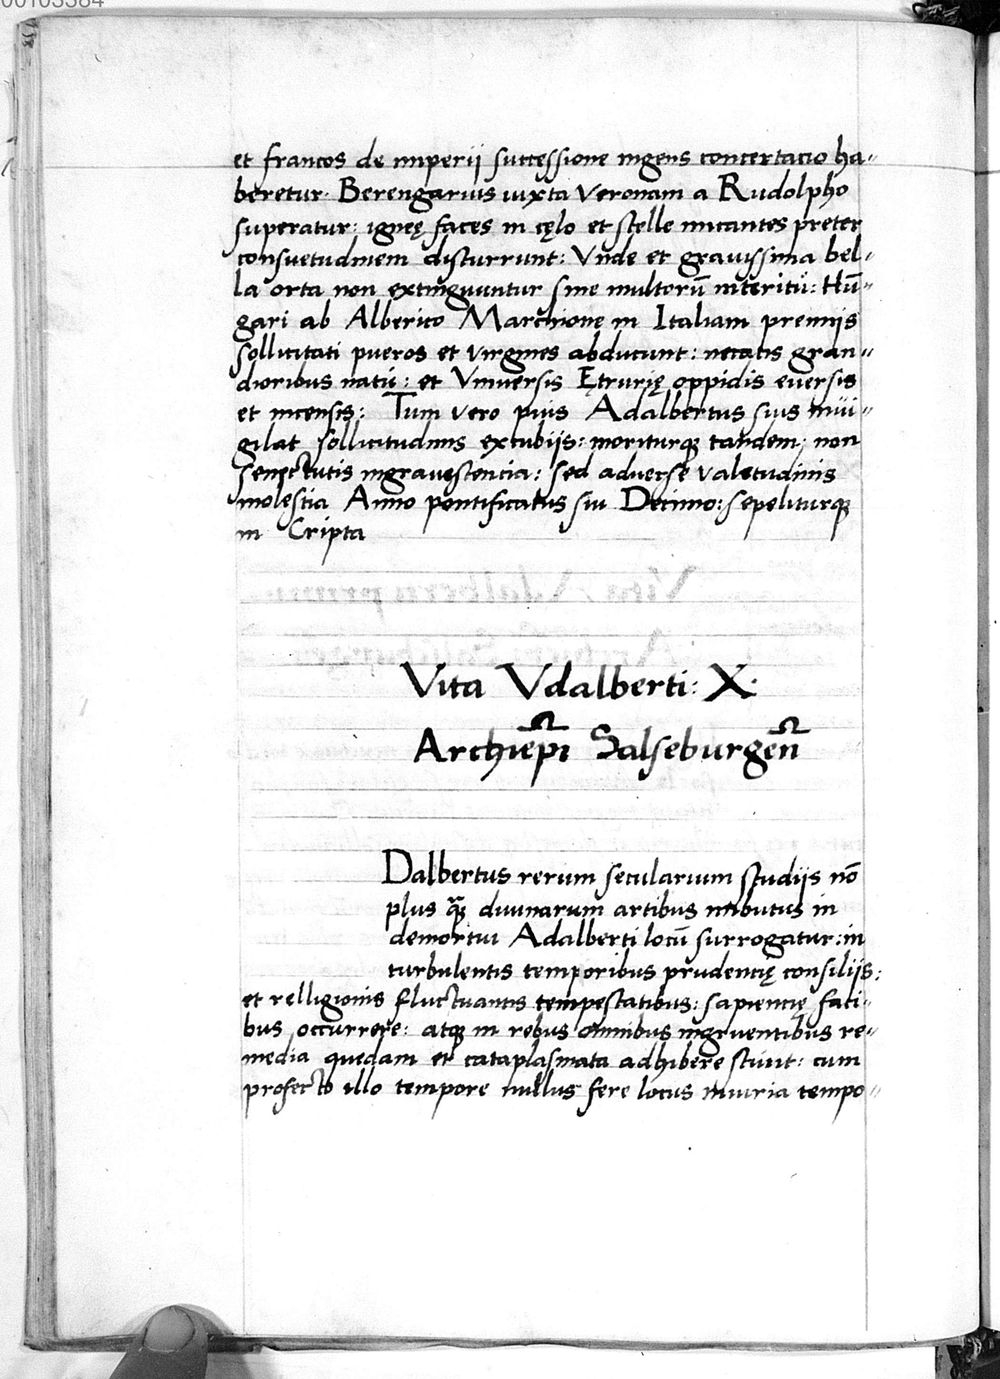 00103384
et francos de imperii successione ingens concertacio ha⸗
beretur. Berengarius iuxta Veronam a Rudolpho
superatur: igneę faces in cęlo et stelle micantes preter
consuetudinem discurrunt: Vnde et grauissima bel⸗
la orta non extinguuntur sine multorū interitu: Hū⸗
gari ab Alberico Marchione in Italiam premiis
sollicitati pueros et virgines abducunt: necatis gran⸗
dioribus natu: et Vniuersis Ętrurię oppidis euersis
et incensis: Tum vero pius Adalbertus suis inui⸗
gilat sollicitudinis excubijs: moriturqꝫ tandem: non
senectutis ingrauescencia: sed aduerse valetudinis
molestia Anno pontificatus sui Decimo: sepeliturqꝫ
in Cripta
Vita Vdalberti: X.
Archiep̄i Salseburgeñ
Dalbertus rerum secularium studijs nō
plus qꝫ̄ diuinarum artibus imbutus in
demortui Adalberti locū surrogatur: in
turbulentis temporibus prudencię consiliis:
et relligionis fluctuantis tempestatibus: sapiencię faci⸗
bus occurrere: atqꝫ in rebus omnibus ingruentibus re⸗
media quedam et cataplasmata adhibere sciuit: cum
profecto illo tempore nullus fere locus iniuria tempo⸗